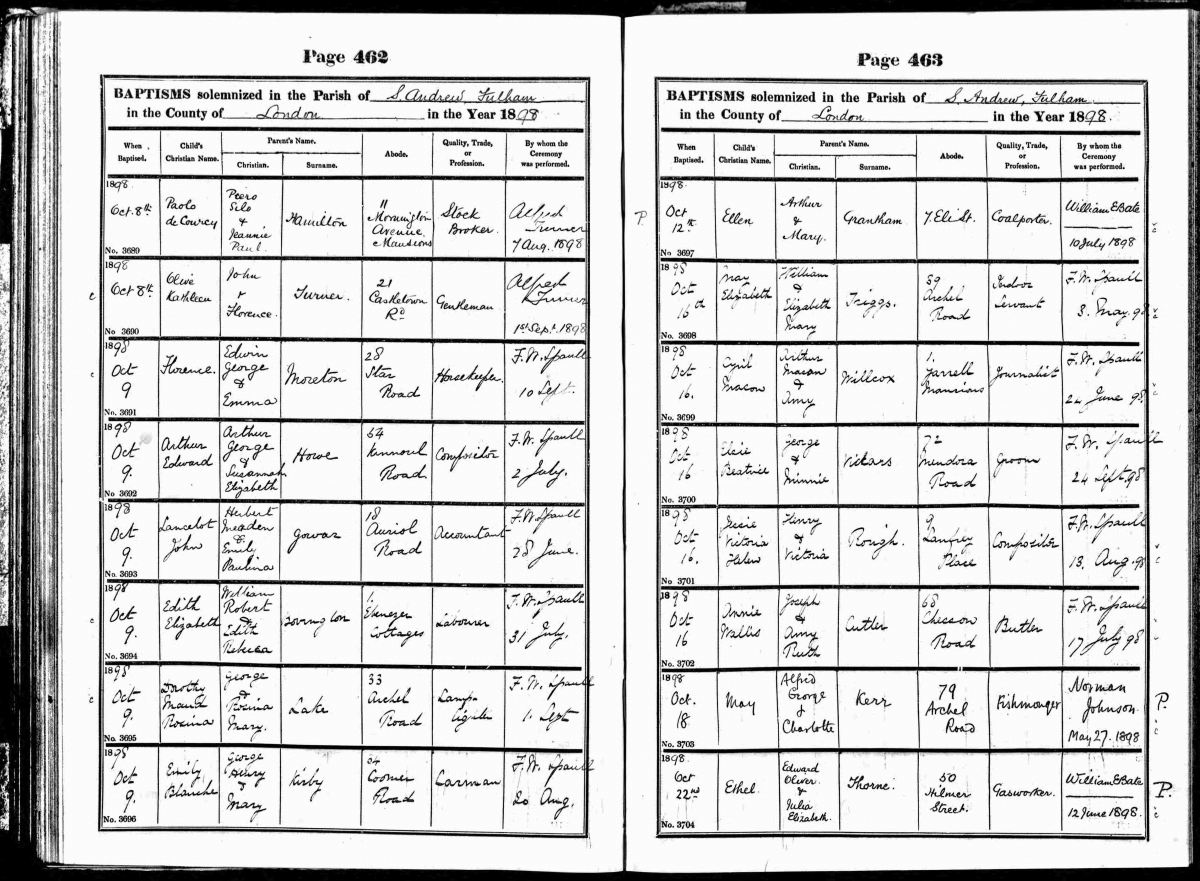 Page 462
BAPTISMS solemnized in the Parish of S. Andrew, Fulham
in the County of London in the Year 1898
When Baptised.
Child's Christian Name.
Parent's Name.
Christian.
Surname.
Abode.
Quality, Trade, or Profession.
By whom the Ceremony was performed.
1898 Oct 8th No. 3689
Paolo de Courcy
Piero & Jeannie Paul.
Hamilton
11 Mornington Avenue Mansions
Stock Broker.
Alfred Turner 7 Aug. 1898
1898 Oct 8th No. 3690
Olive Kathleen
John + Florence.
Turner.
21 Castletown Rd
Gentleman
Alfred Turner 1st Sept. 1898
1898 Oct 9 No. 3691
Florence.
Edwin George & Emma
Moreton
28 Star Road
Horsekeeper.
F. W. Spaull 10 Sept.
1898 Oct 9. No. 3692
Arthur Edward
Arthur George & Susannah Elizabeth
Howe
Road
Compositor
F. W. Spaull 2 July.
1898 Oct 9. No. 3693
Lancelot John
Herbert Meaden & Emily Paulina
Gowar
18 Auriol Road
Accountant
F. W. Spaull 28 June.
1898 Oct 9. No. 3694
Edith Elizabeth
William Robert & Edith Rebecca
Lovington
1. Ebenezer Cottages
Labourer
F. W. Spaull 31 July.
1898 Oct 9. No. 3695
Dorothy Maud Rosina
George & Rosina Mary.
Lake
33 Archel Road
Lamp lighter
F. W. Spaull 1. Sept
1898 Oct 9. No. 3696
Emily Blanche
George Henry & Mary
Kirby
Coomer Road
Carman
F. W. Spaull 20 Aug.
Page 463
BAPTISMS solemnized in the Parish of S. Andrew, Fulham.
in the County of London in the Year 1898.
When Baptised.
Child's Christian Name.
Parent's Name.
Christian.
Surname.
Abode.
Quality, Trade, or Profession.
By whom the Ceremony was performed.
P.
1898 Oct 12th No. 3697
Ellen
Arthur & Mary.
Grantham
7 Eli St.
Coalporter.
William E Bate 10 July 1898
1898 Oct 16th No. 3698
May Elizabeth
William & Elizabeth Mary
Triggs.
59 Archel Road
Indoor Servant
F. W. Spaull 3. May. 98
1898 Oct 16. No. 3699
Cyril Macon
Arthur Macon & Amy
Willcox
1. Yarrell Mansions
Journalist
F. W. Spaull 24 June 98
1898 Oct 16 No. 3700
Elsie Beatrice
George & Minnie
Vickars
72 Mendora Road
Groom
F. W. Spaull 24 Sept. 98
1898 Oct 16. No. 3701
Victoria Helen
Henry & Victoria
Rough.
9 Lanfrey Place
Compositor
F. W. Spaull 13. Aug. 98
1898 Oct 16 No. 3702
Annie Willis
Joseph & Amy Ruth
Cutler
68 Chesson Road
Butler
F. W. Spaull 17 July 98
1898 Oct. 18 No. 3703
May
Alfred George & Charlotte
Kerr
79 Archel Road
Fishmonger
Norman Johnson. May 27. 1898
P.
1898 Oct 22nd No. 3704
Ethel.
Edward Oliver. & Julia Elizabeth.
Thorne.
50 Hilmer Street.
Gasworker.
William E Bate 12 June 1898.
P.